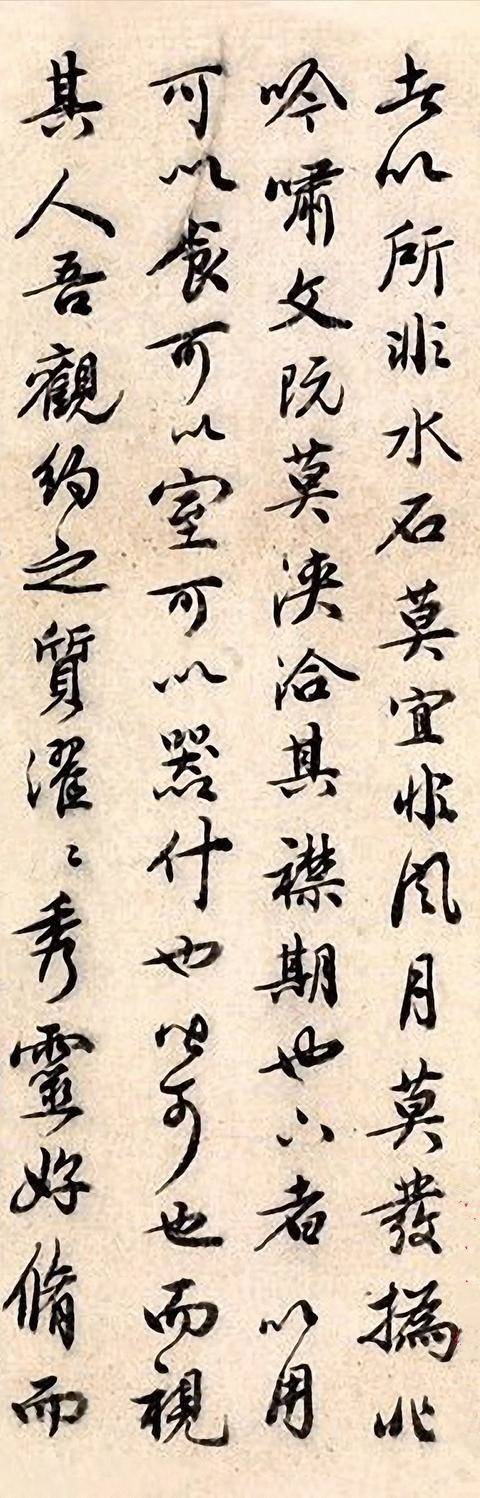 者以所非水石莫宜非風月莫發攄非
吟啸文阮莫浹洽其襟期也六者以用
可以食可以室可以器什也皆可也而視
其人吾觀約之質濯〻秀靈好脩而